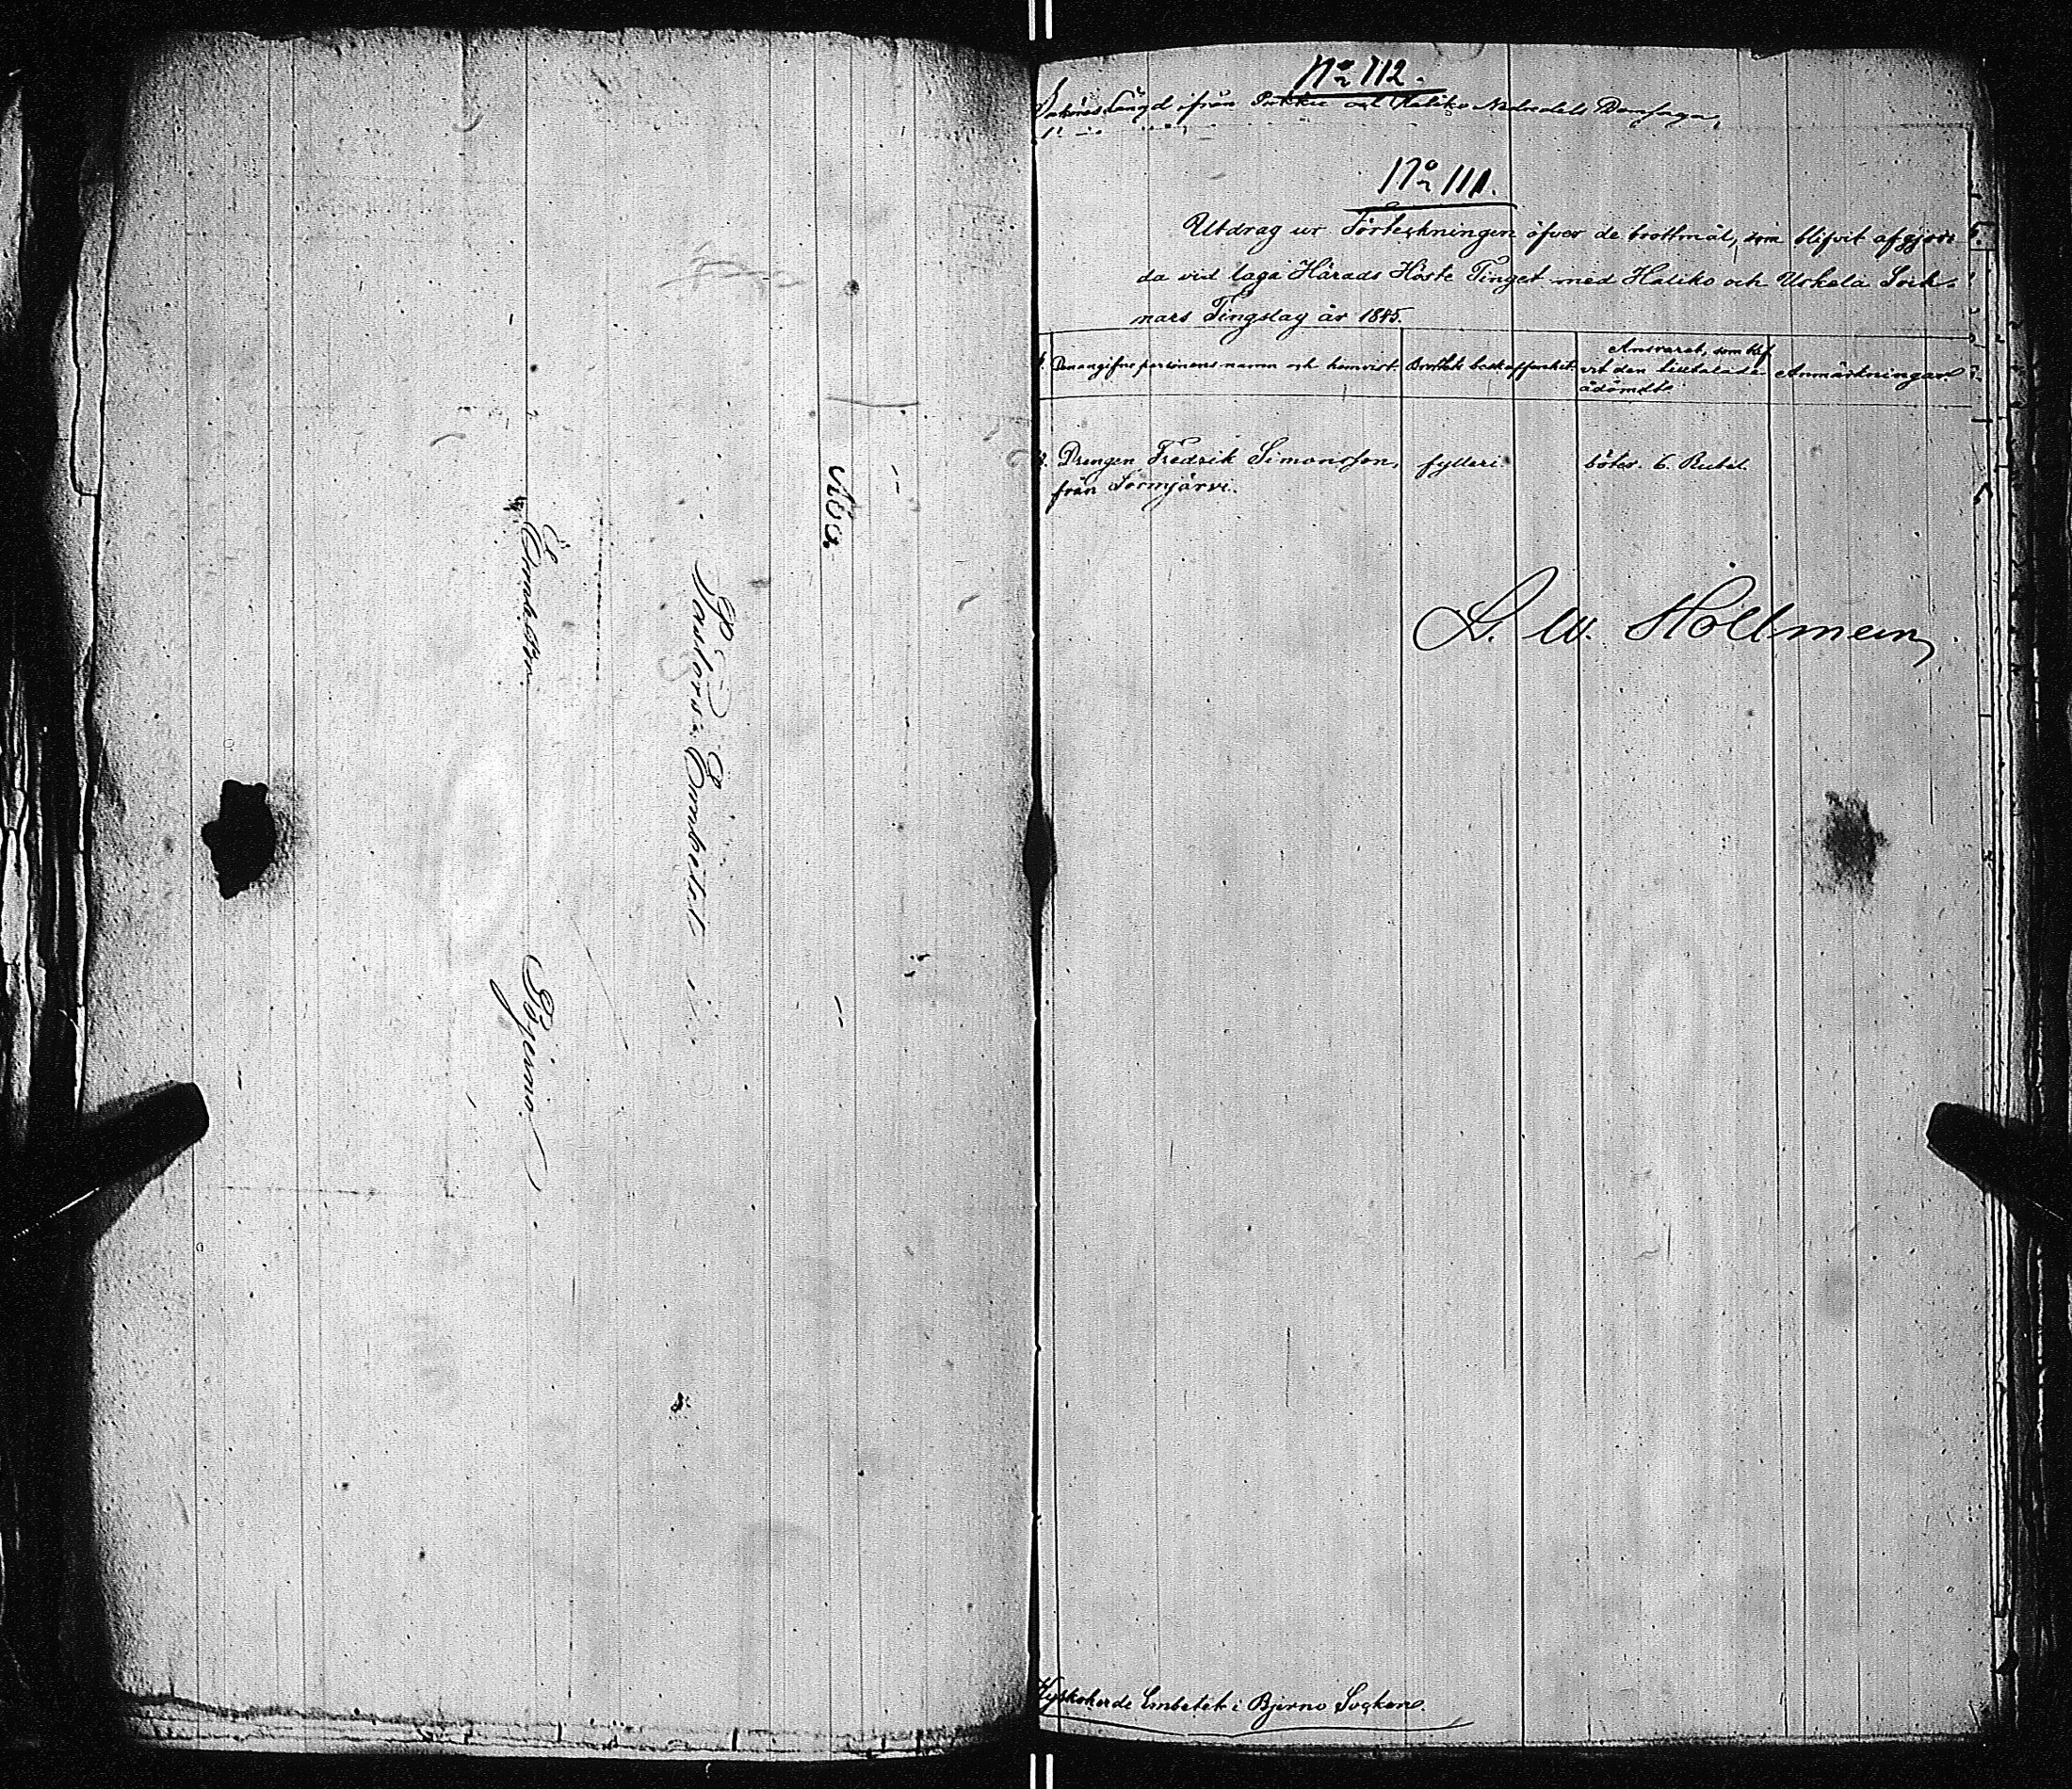 Åbo.
Pastors-Embetet i
Bjerno.
No 112.
Längd ifrån och Haliko Nedredels Domsaga,
No 111.
Utdrag ur Förteckningen öfver de brottmål, som blifvit afgjor-
da vid laga Härads Höste Tinget med Haliko och Uskela Sock-
nars Tingslag år 1845.
Den angifne personens namn och hemvist.
Brottets beskaffenhet.
Ansvaret, som blif
vit den tilltalade
ådömdt.
Anmärkningar.
Drengen Fredrik Simonsson,
från
fylleri.
böter. 6. Rubel.
Hollmén
Embetet i Bjerno Socken.